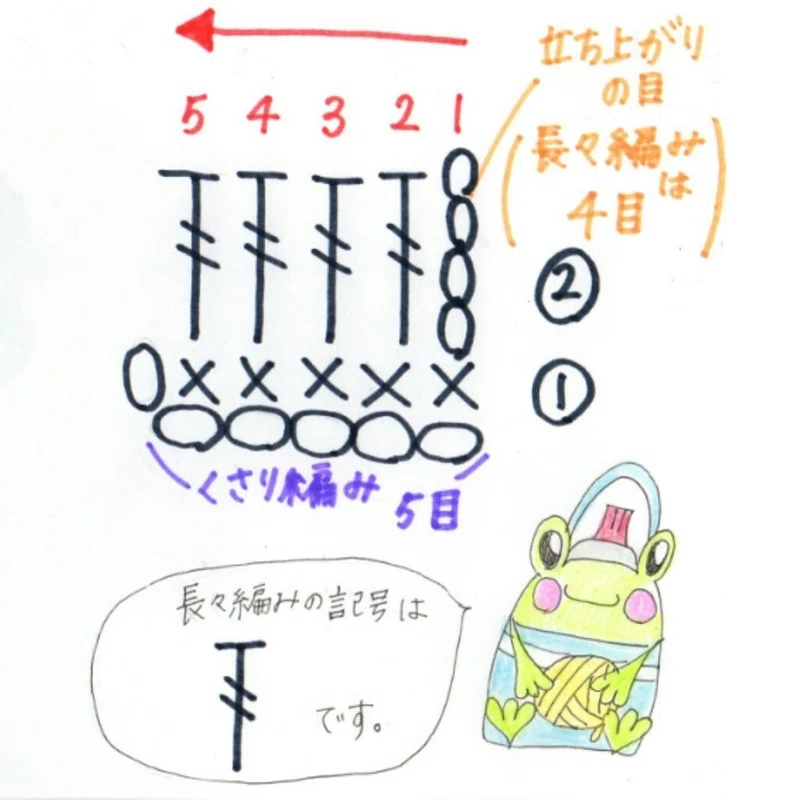 5 4 3 2 1
立ち上がり
の目
(長々編み
は
4目)
②
①
くさり編み 5目
長々編みの記号は
です。